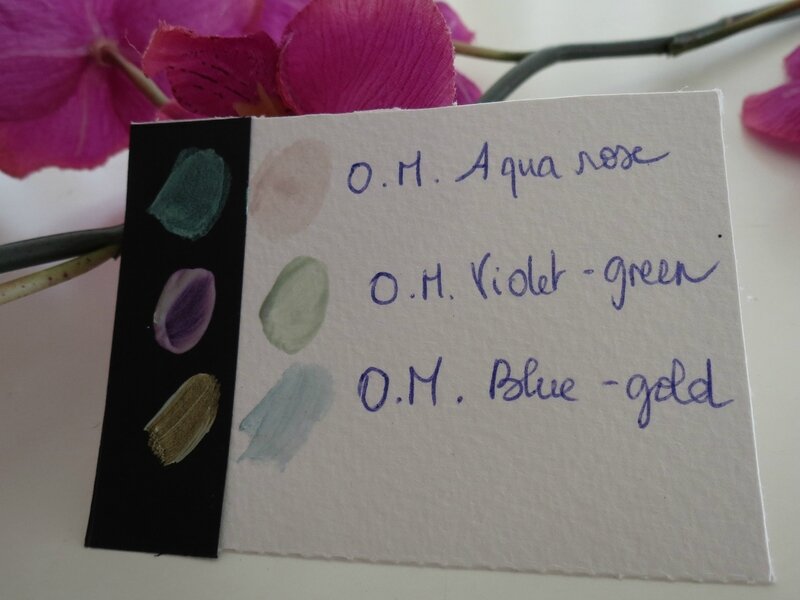 O.M. Aqua rose
O.M. Violet - green
O.M. Blue - gold